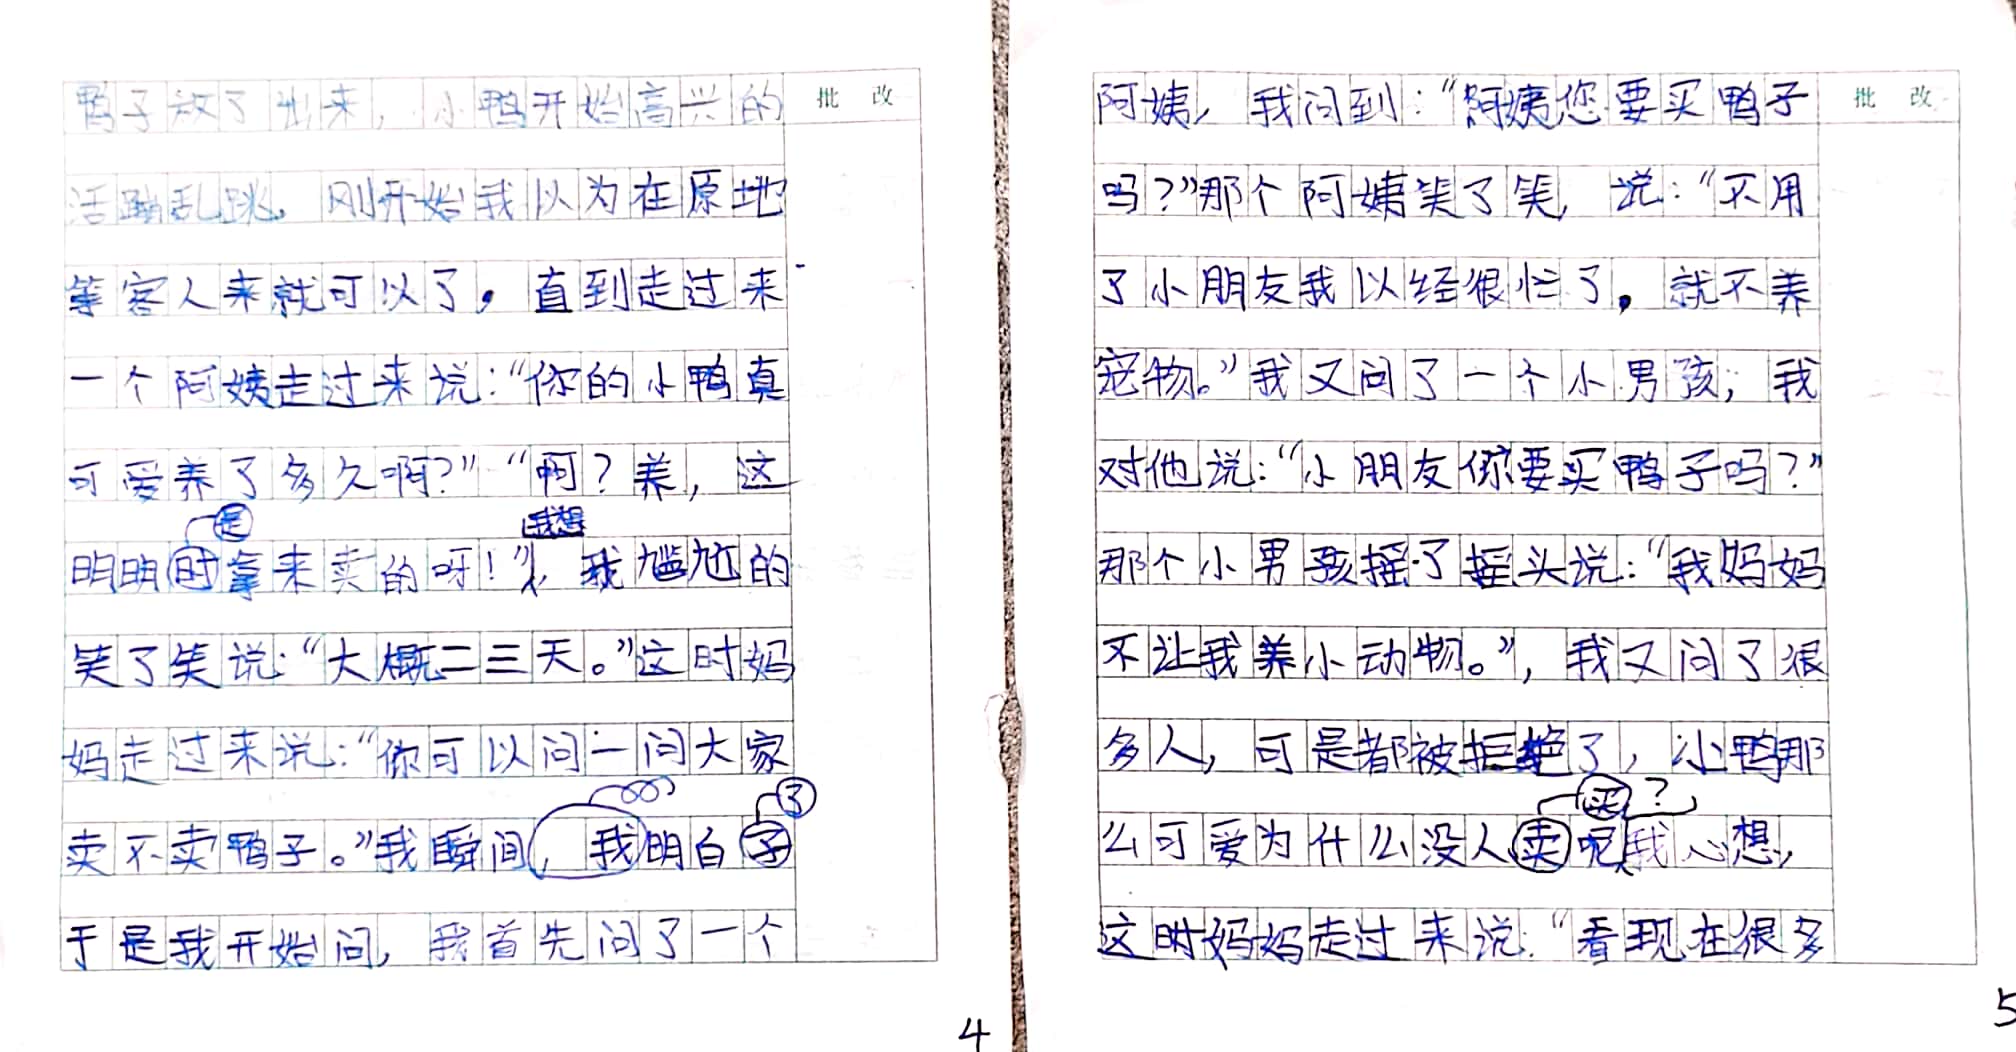 鸭子放了出来，小鸭开始高兴的
批 改
活蹦乱跳。刚开始我以为在原地
等客人来就可以了，直到走过来
一个阿姨走过来说：“你的小鸭真
可爱养了多久啊？”“啊？养，这
是
我想
明明时拿来卖的呀！”，我尴尬的
笑了笑说：“大概二三天。”这时妈
妈走过来说：“你可以问一问大家
了
卖不卖鸭子。”我瞬间，我明白子
于是我开始问，我首先问了一个
4
阿姨，我问到：“阿姨您要买鸭子
批 改
吗？”那个阿姨笑了笑，说：“不用
了小朋友我以经很忙了，就不养
宠物。”我又问了一个小男孩，我
对他说：“小朋友你要买鸭子吗？”
那个小男孩摇了摇头说：“我妈妈
不让我养小动物。”，我又问了很
多人，可是都被拒绝了，小鸭那
买 ？
么可爱为什么没人卖呢我心想，
这时妈妈走过来说：“看现在很多
5